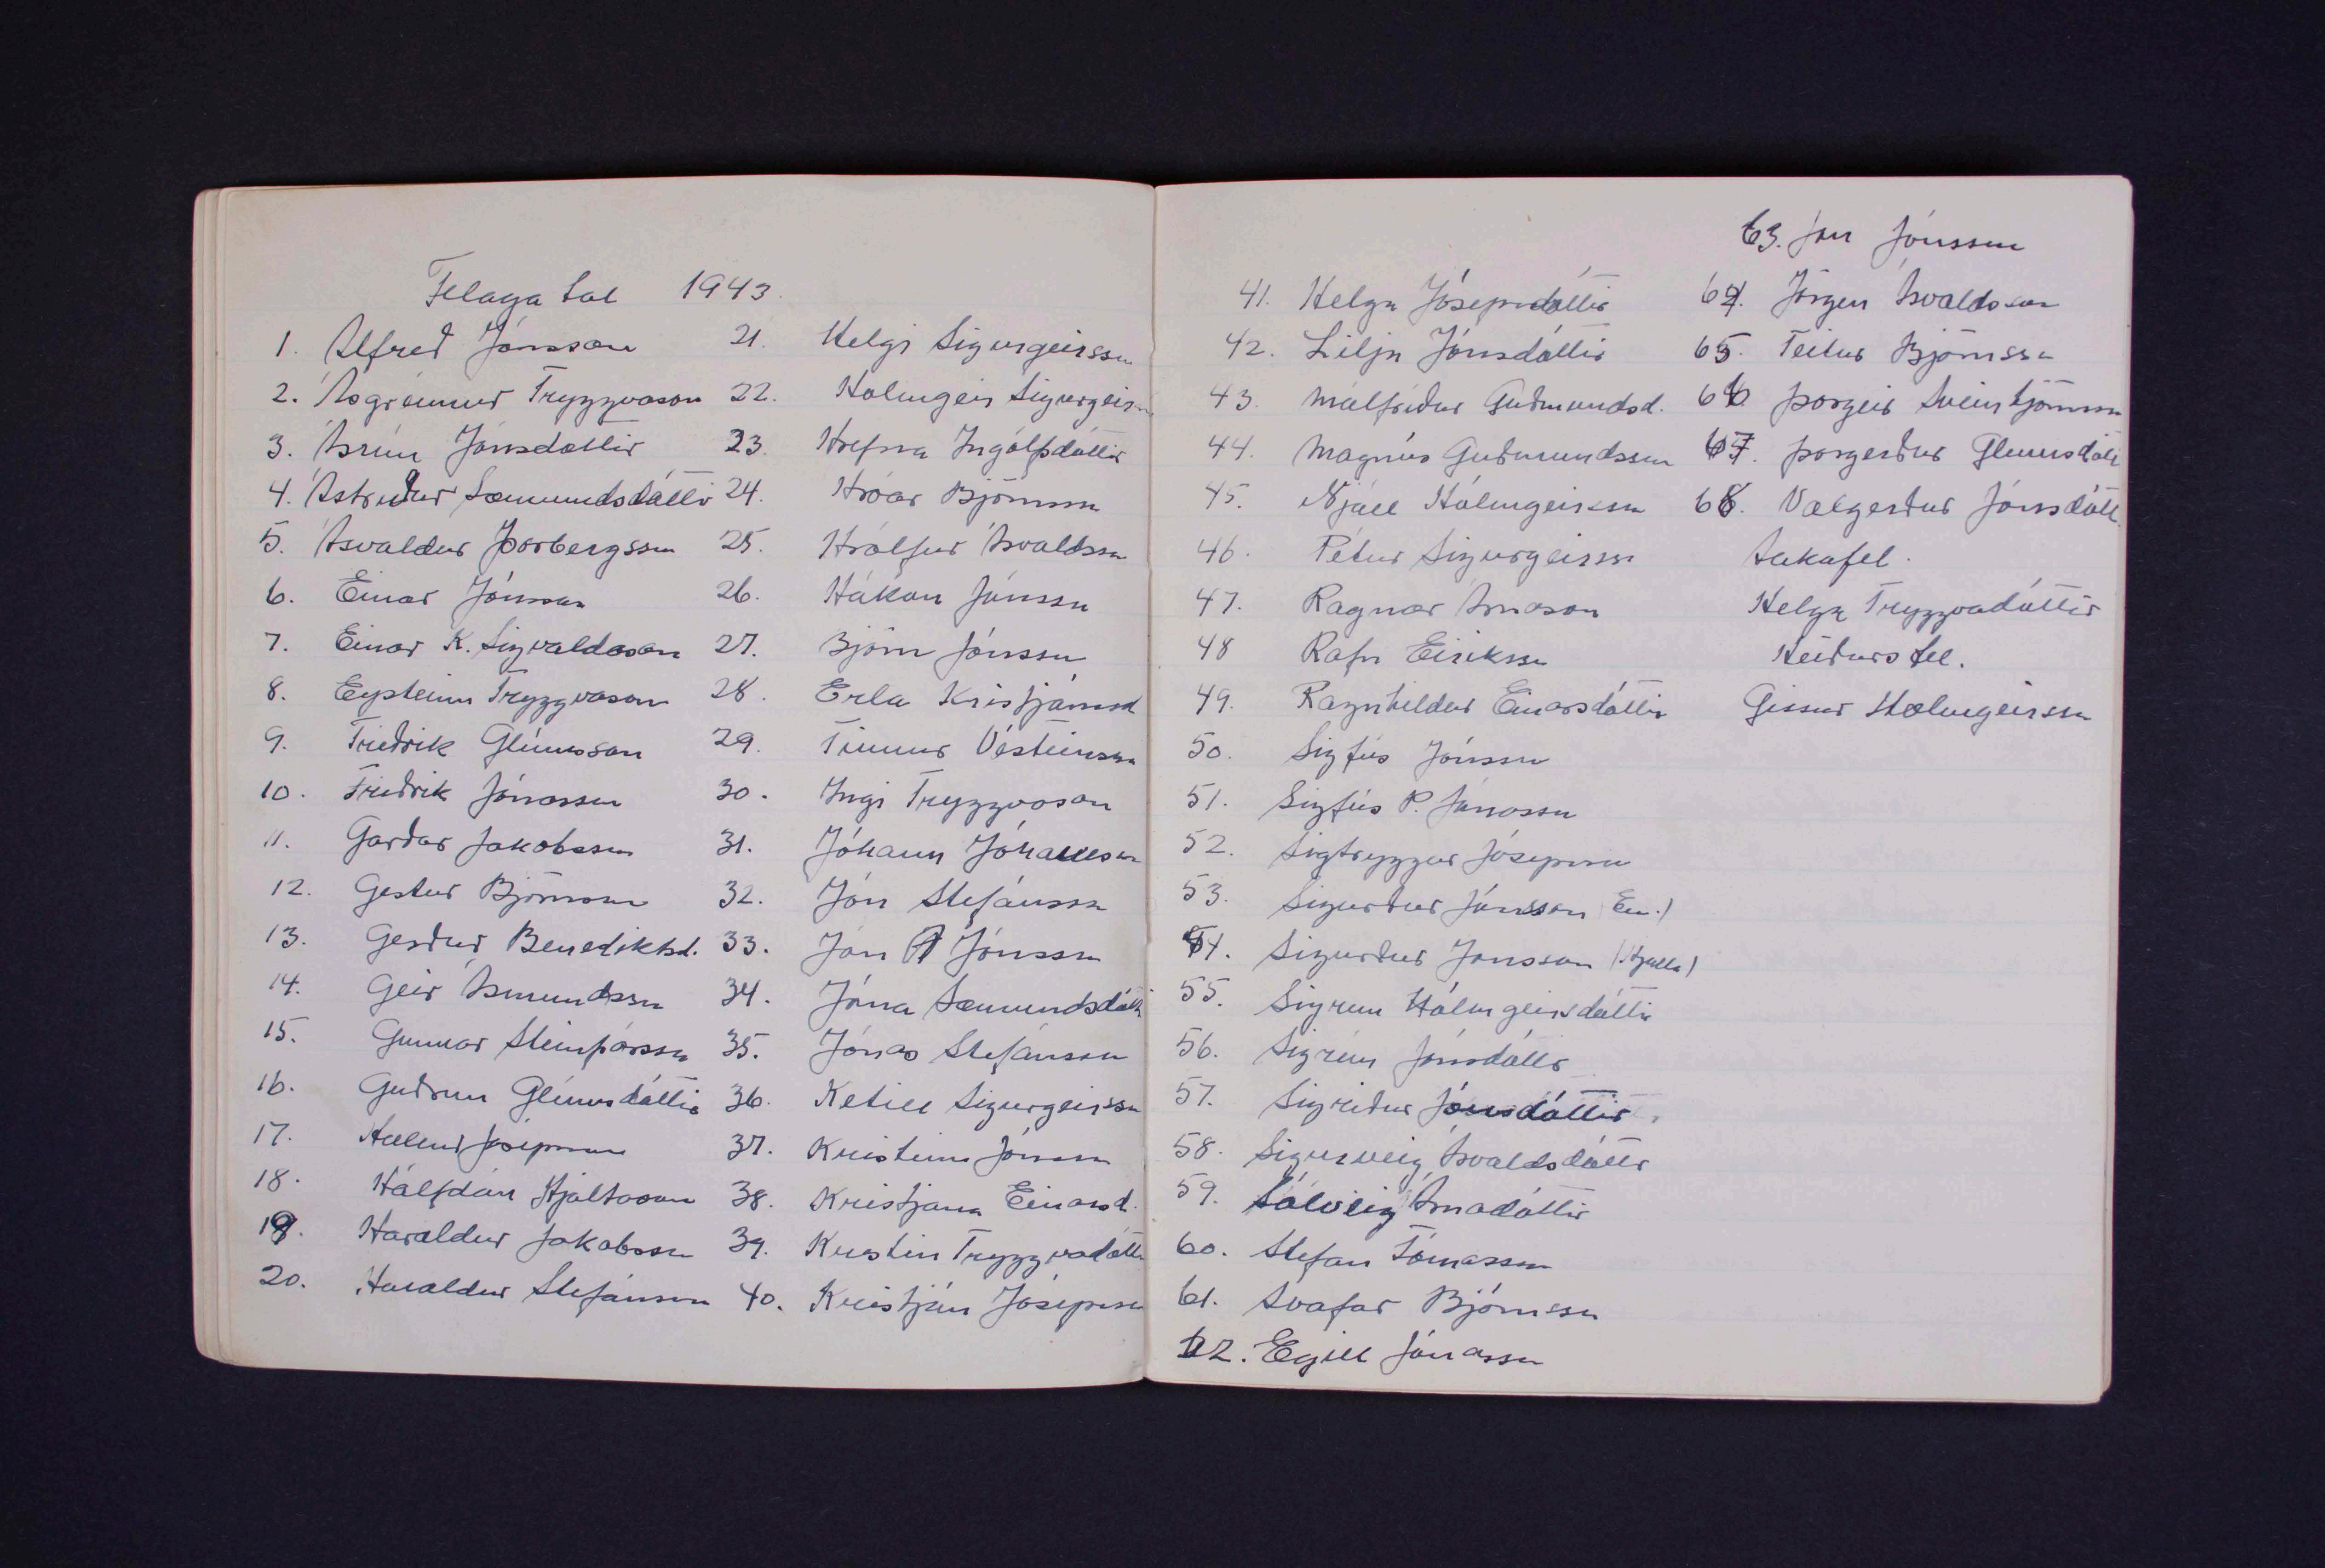 Felaga tal 1943.
1. Alfred Jónsson
2. Ásgrímur Tryggvason
3. Ásrún Jónsdóttir
4. Ástríður Sæmundsdóttir
5. Ásvaldur Þorbergsson
6. Einar Jónsson
7. Einar K. Sigvaldason
8. Eysteinn Tryggvason
9. Friðrik Glúmsson
10. Friðrik Jónasson
11. Garðar Jakobsson
12. Gestur Björnsson
13. Gerður Benediktsd.
14. Geir Ásmundssn
15. Gunnar Steinþórssn
16. Guðrún Glúmsdóttir
17. Jósepsson
18. Hálfdán Hjaltason
19. Haraldur Jakobssn
20. Haraldur Stefánssn
21. Helgi Sigurgeirssn
22. Hólmgeir Sigurgeirssn
23. Hrefna Ingólfsdóttir
24. Hróar Björnssn
25. Hrólfur Ásvaldssn
26. Hákon Jónssn
27. Björn Jónssn
28. Erla Kristjánsd
29. Vésteinssn
30. Ingi Tryggvason
31. Jóhann Jóhannessn
32. Jón Stefánssn
33. Jón Á Jónssn
34. Jóna Sæmundsdótti
35. Jónas Stefánssn
36. Ketill Sigurgeirssn
37. Kristinn Jónssn
38. Kristjana Einarsd.
39. Kristín Tryggvadótti
40. Kristján Jósepssn
41. Helga Jósepsdóttir
42. Lilja Jónsdóttir
43. Málfríður Guðmundsd.
44. Magnús Guðmundssn
45. Njáll Hólmgeirssn
46. Pétur Sigurgeirssn
47. Ragnar Árnason
48 Rafn Eirikssn
49. Ragnhildur Einarsdóttir
50. Sigfús Jónssn
51. Sigfús P. Jónassn
52. Sigtryggur Jósepssn
53. Sigurður Jónsson
54. Sigurður Jonsson
55. Sigrún Hólmgeirsdóttir
56. Sigrún Jónsdóttir
57. Sigríður Jónsdóttir.
58. Sigurveig Ásvaldsdóttir
59. Sólveig Árnadóttir
60. Stefan Tómassn
61. Svafar Björnssn
62. Egill Jónassn
63. Jón Jónssn
64. Jörgen Ásvaldsson
65. Teitur Björnssn
66. Þorgeir Sveinbjörnssn
67. Þorgerður Glúmsdótt
68. Valgerður Jónsdótt.
Aukafel.
Helga Tryggvadóttir
Heiðursfel.
Gissur Hólmgeirssn